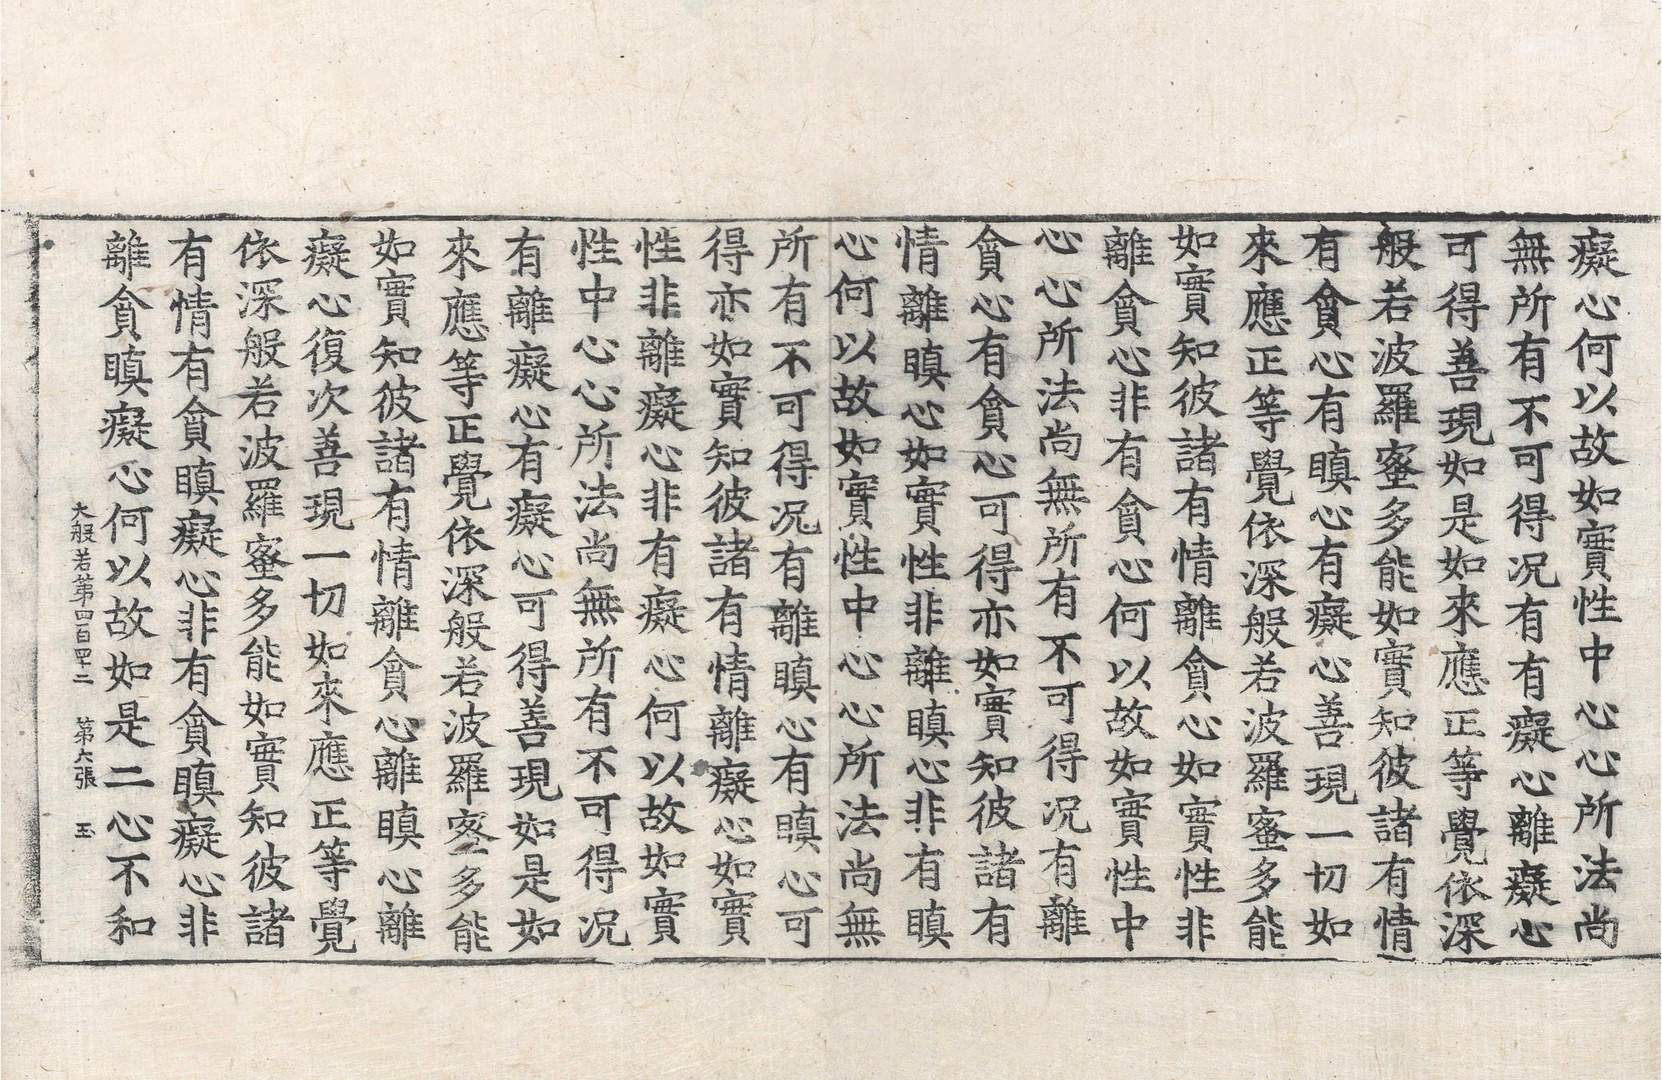 癡心何以故如實性中心心所法尚
無所有不可得况有有癡心離癡心
可得善現如是如來應正等覺依深
般若波羅蜜多能如實知彼諸有情
有貪心有瞋心有癡心善現一切如
來應正等覺依深般若波羅蜜多能
如實知彼諸有情離貪心如實性非
離貪心非有貪心何以故如實性中
心心所法尚無所有不可得况有離
貪心有貪心可得亦如實知彼諸有
情離瞋心如實性非離瞋心非有瞋
心何以故如實性中心心所法尚無
所有不可得况有離瞋心有瞋心可
得亦如實知彼諸有情離癡心如實
性非離癡心非有癡心何以故如實
性中心心所法尚無所有不可得况
有離癡心有癡心可得善現如是如
來應等正覺依深般若波羅蜜多能
如實知彼諸有情離貪心離瞋心離
癡心復次善現一切如來應正等覺
依深般若波羅蜜多能如實知彼諸
有情有貪瞋癡心非有貪瞋癡心非
離貪瞋癡心何以故如是二心不和
大般若第四百四十二 第六張 玉